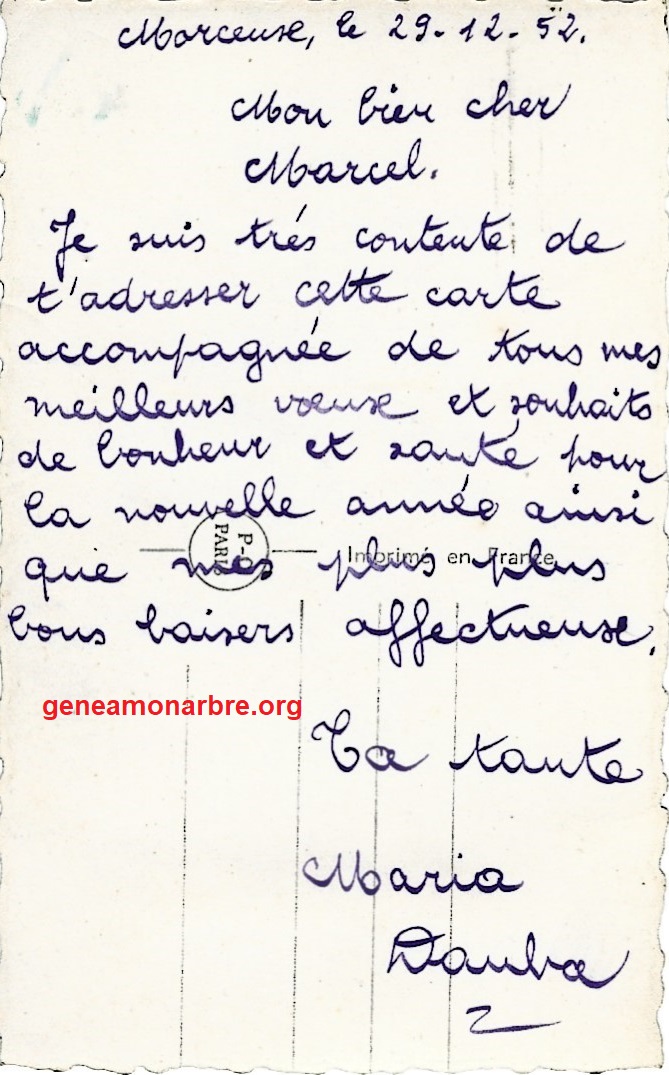 Morcenx, le 29-12-52.
Mon bien cher
Marcel.
Je suis trés contente de
t'adresser cette carte
accompagnée de tous mes
meilleurs voeux et souhaits
de bonheur et santé pour
la nouvelle année ainsi
PARIS
Imprimé en France
que mes plus plus
bons baisers affectueux.
geneamonarbre.org
Ta tante
Maria
Dauba